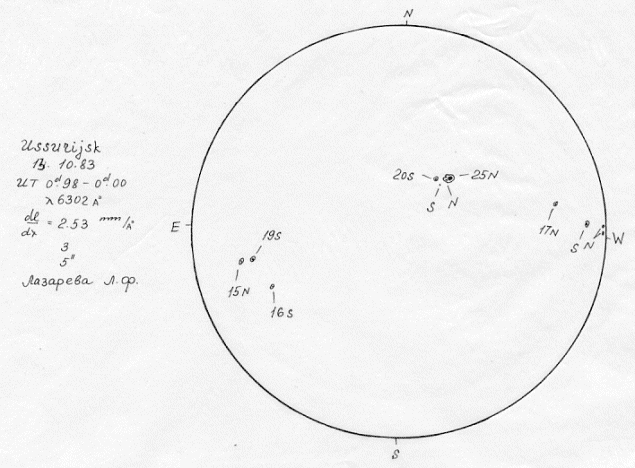 N
Ussurijsk
10.83
UT 0ᵈ.98 – 0ᵈ.00
λ 6302 Å
dl/dx = 2.53 mm/Å
3
5"
Лазарева Л.Ф.
20S
25N
S N
17N
S N W
E
19S
15N
16S
S